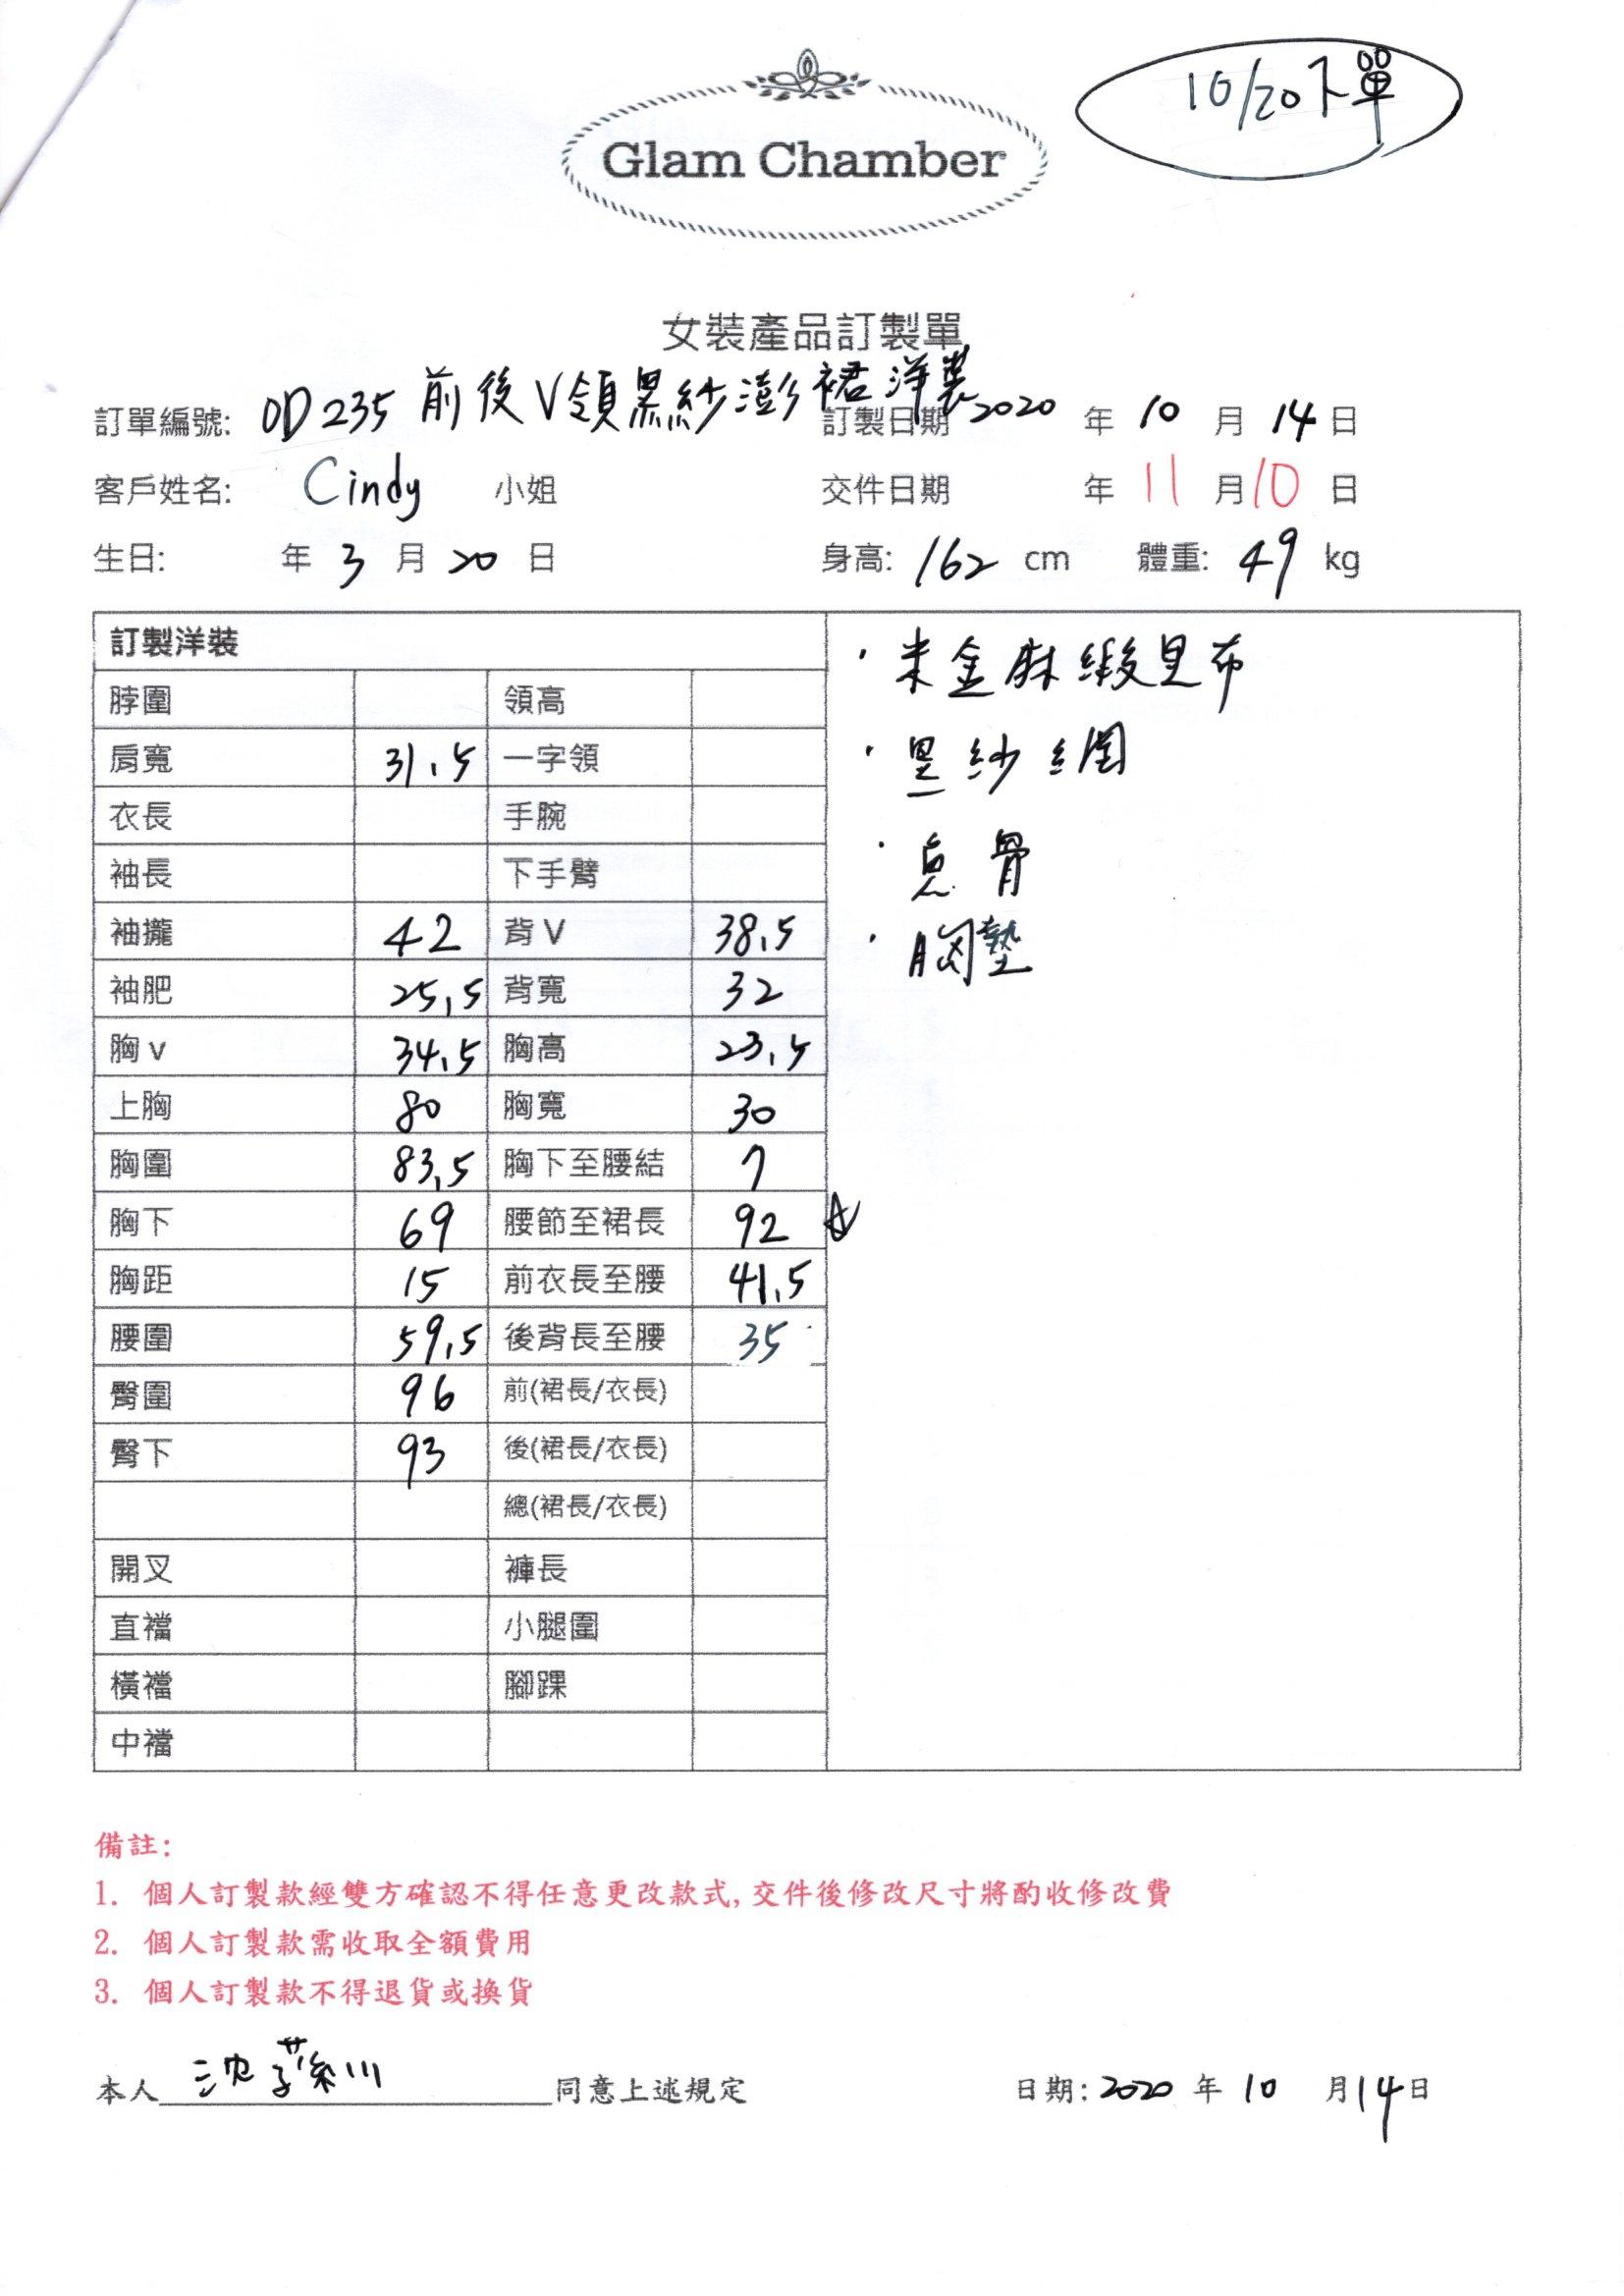 10/20下單
Glam Chamber
女裝產品訂製單
訂單編號: OD235 前後V領黑紗澎裙洋裝 訂製日期 2020 年 10 月 14 日
客戶姓名: Cindy 小姐 交件日期 年 11 月 10 日
生日: 年 3 月 20 日 身高: 162 cm 體重: 49 kg
訂製洋裝
脖圍 領高
肩寬 31.5 一字領
衣長 手腕
袖長 下手臂
袖攏 42 背V 38.5
袖肥 25.5 背寬 32
胸v 34.5 胸高 23.5
上胸 80 胸寬 30
胸圍 83.5 胸下至腰結 7
胸下 69 腰節至裙長 92 ☆
胸距 15 前衣長至腰 41.5
腰圍 59.5 後背長至腰 35
臀圍 96 前(裙長/衣長)
臀下 93 後(裙長/衣長)
總(裙長/衣長)
開叉 褲長
直襠 小腿圍
橫襠 腳踝
中襠
· 米金麻緞里布
· 黑紗網
· 魚骨
· 胸墊
備註:
1. 個人訂製款經雙方確認不得任意更改款式,交件後修改尺寸將酌收修改費
2. 個人訂製款需收取全額費用
3. 個人訂製款不得退貨或換貨
本人 沈 同意上述規定 日期: 2020 年 10 月 14 日